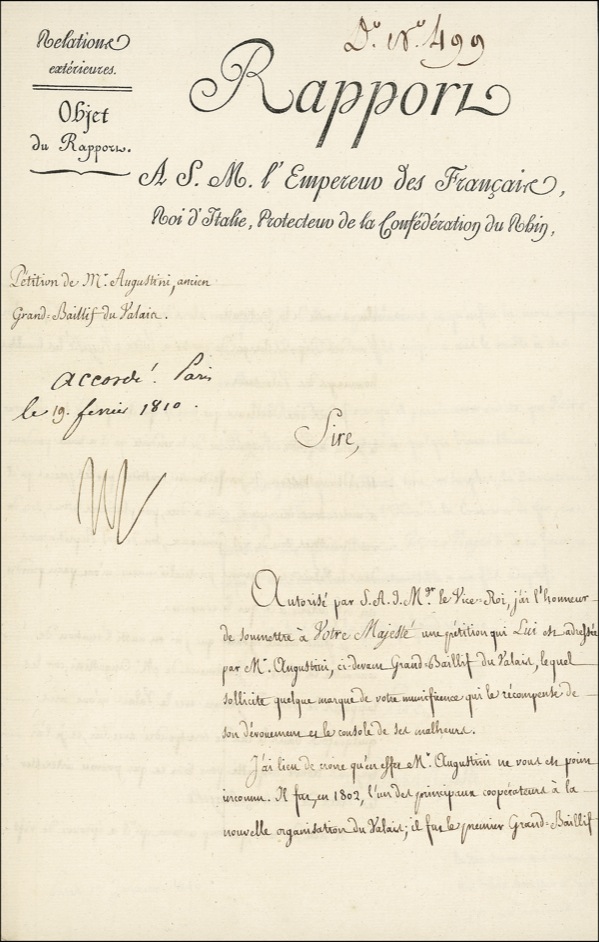 Do. No. 499
Relations
extérieures.
Objet
du Rapport.
Rapport
A S. M. l'Empereur des Français,
Roi d'Italie, Protecteur de la Confédération du Rhin,
Pétition de Mr. Augustini, ancien
Grand-Baillif du Valais.
accordé. Paris
le 19. fevrier 1810.
Sire,
Autorisé par S. A. I. Mgr. le Vice-Roi, j'ai l'honneur
de soumettre à Votre Majesté une pétition qui Lui est adressée
par Mr. Augustini, ci-devant Grand-Baillif du Valais, lequel
sollicite quelque marque de votre munificence qui le récompense de
son dévouement et le console de ses malheurs.
J'ai lieu de croire qu'en effet Mr. Augustini ne vous est point
inconnu. Il fut, en 1802, l'un des principaux coopérateurs à la
nouvelle organisation du Valais; il fut le premier Grand-Baillif